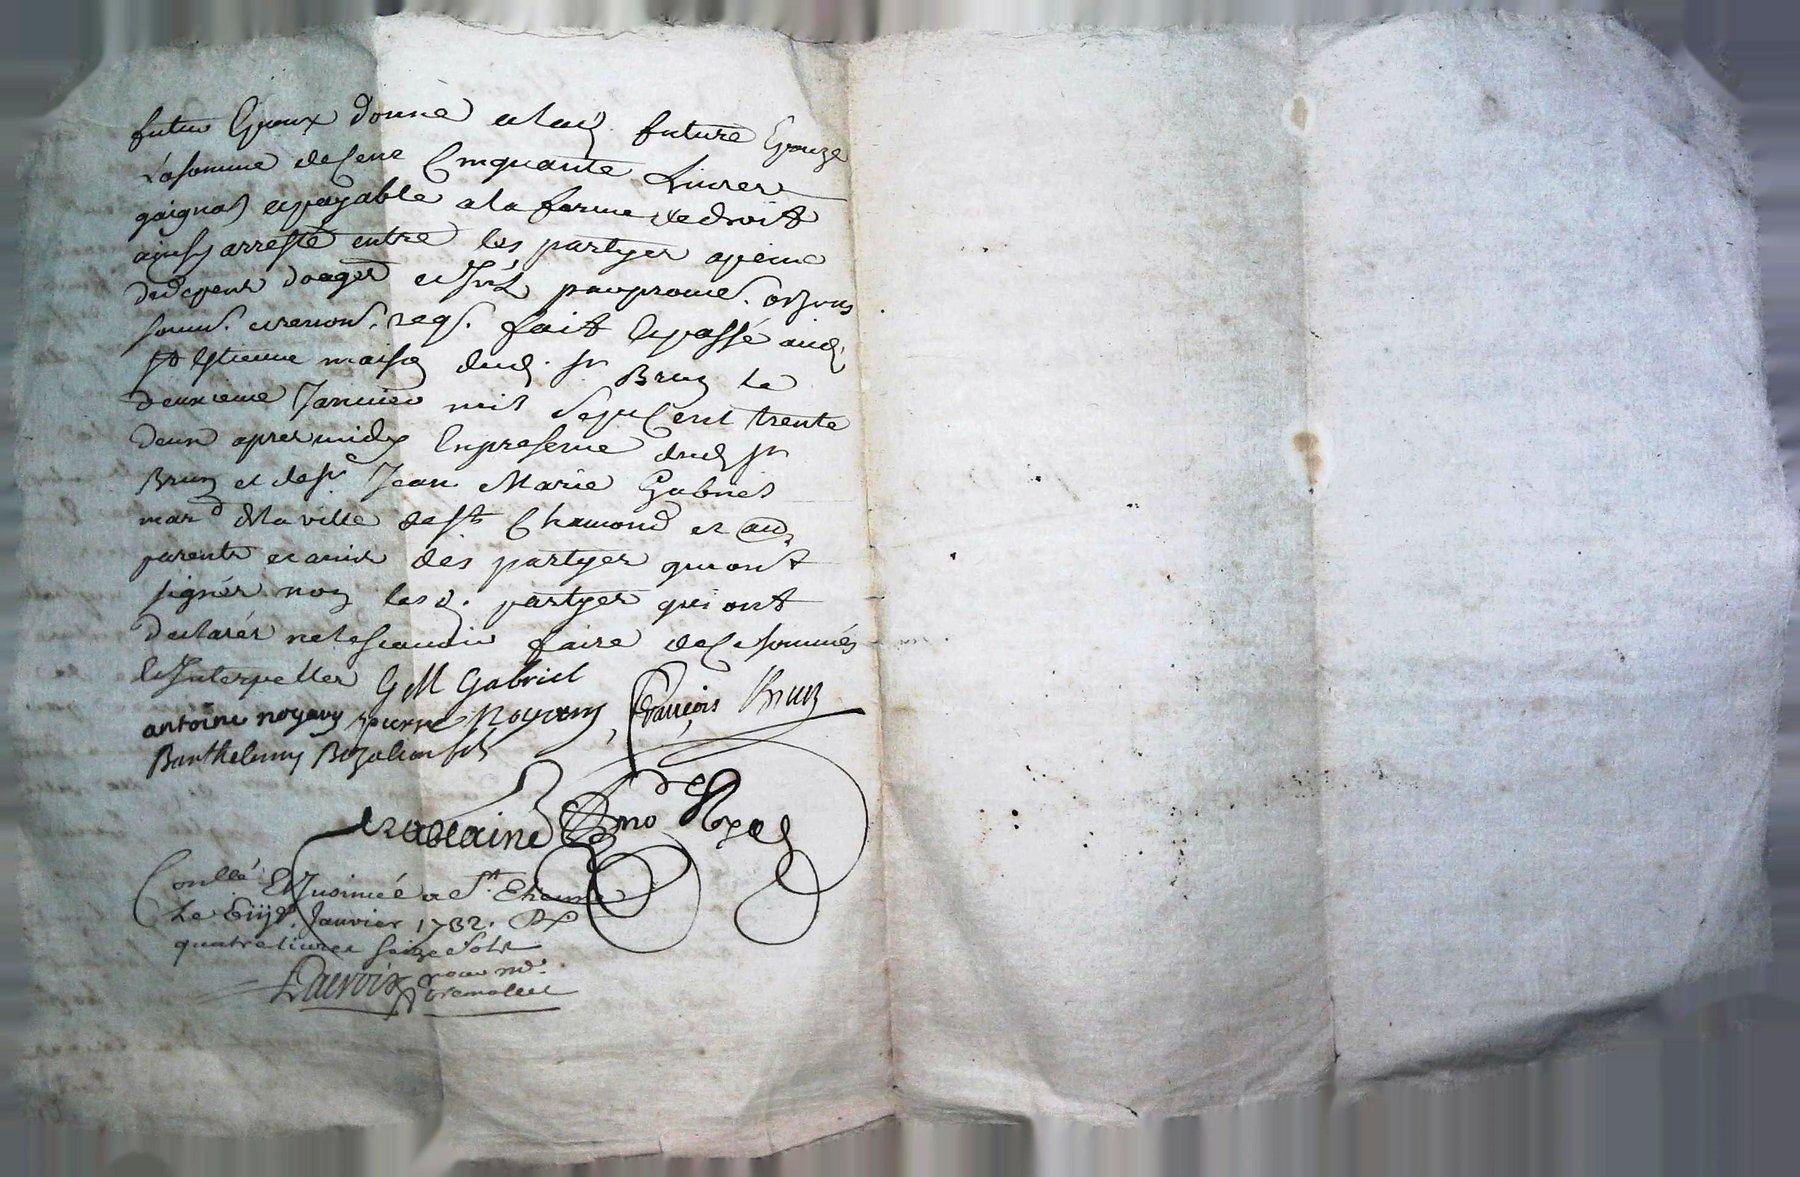 futur Epoux donne a lad. future Epouze
la somme de Cent Cinquante Livres
gaignés et payable a la forme de droit
ainsy arresté entre les partyes a peine
de depens domages
soumis. et renons. reqs. fait et passé aud.
St Estienne maison dud. sr Brun le
deuxieme Janvier mil sept Cent trente
deux apres midy En presence dud sr
Brun et de sr Jean Marie Gabriel
mard de la ville de st Chamond et au.
parents et amis des partyes qui ont
signés non lesd. partyes qui ont
declarés ne le scavoir faire de ce sommés
et Interpelles G M Gabriel
antoine noyary pierre Noyary François Brun
Barthelemy
Conllé Et Insinué a St Etienne
Le Janvier 1732. R
quatre livres seize sols
Lacroix pour mr.